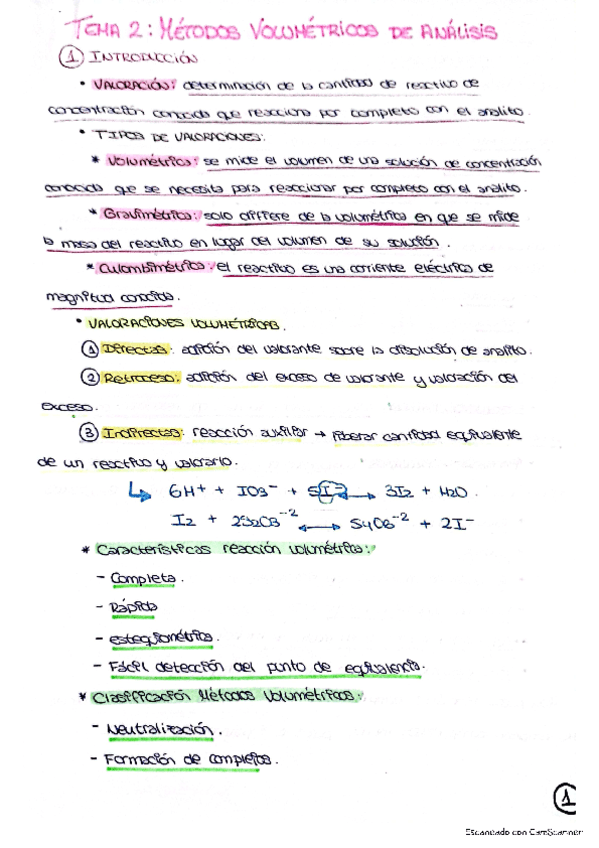 TEMA 2: MÉTODOS VOLUMÉTRICOS DE ANÁLISIS
① INTRODUCCIÓN
• VALORACIÓN: determinación de la cantidad de reactivo de
concentración conocida que reacciona por completo con el analito.
• TIPOS DE VALORACIONES:
* Volumétrica: se mide el volumen de una solución de concentración
conocida que se necesita para reaccionar por completo con el analito.
* Gravimétrica: solo difiere de la volumétrica en que se mide
la masa del reactivo en lugar del volumen de su solución.
* Culombimétrica: el reactivo es una corriente eléctrica de
magnitud conocida.
• VALORACIONES VOLUMÉTRICAS.
① Directas: adición del valorante sobre la disolución de analito.
② Retroceso: adición del exceso de valorante y valoración del
exceso.
③ Indirectas: reacción auxiliar → liberar cantidad equivalente
de un reactivo y valorarlo.
↳ 6H+ + IO3- + 5I- ↔ 3I2 + H2O.
I2 + 2S2O3-2 ↔ S4O6-2 + 2I-
* Características reacción volumétrica:
- Completa.
- Rápida
- estequiométrica.
- Fácil detección del punto de equivalencia.
* Clasificación Métodos Volumétricos:
- Neutralización.
- Formación de complejos.
①
Escaneado con CamScanner